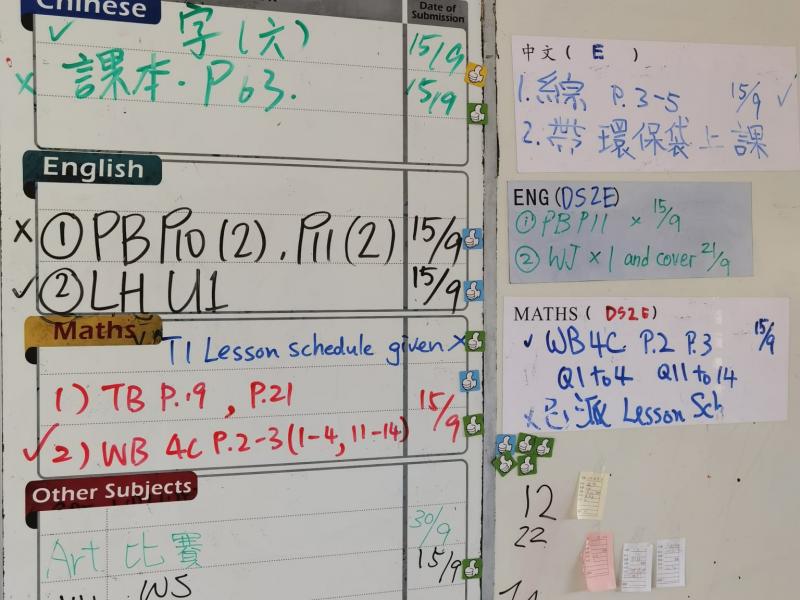 Chinese
Date of Submission
✓ 字(六) 15/9
× 課本. P63. 15/9
English
× ① PB P10(2). P11(2) 15/9
✓ ② LH U1 15/9
Maths
T1 Lesson schedule given ×
1) TB P.19, P.21
✓ 2) WB 4C P.2-3(1-4, 11-14) 15/9
Other Subjects
Art 比賽 30/9
INS 15/9
中文( E )
1. 綜 P.3-5 15/9 ✓
2. 帶 環保袋上課
ENG (DS2E)
① PB P11 × 15/9
② WJ × 1 and cover 21/9
MATHS ( DS2E )
✓ WB 4C P.2 P.3 15/9
Q1 to 4 Q11 to 14
× 已派 Lesson Sch
12
22